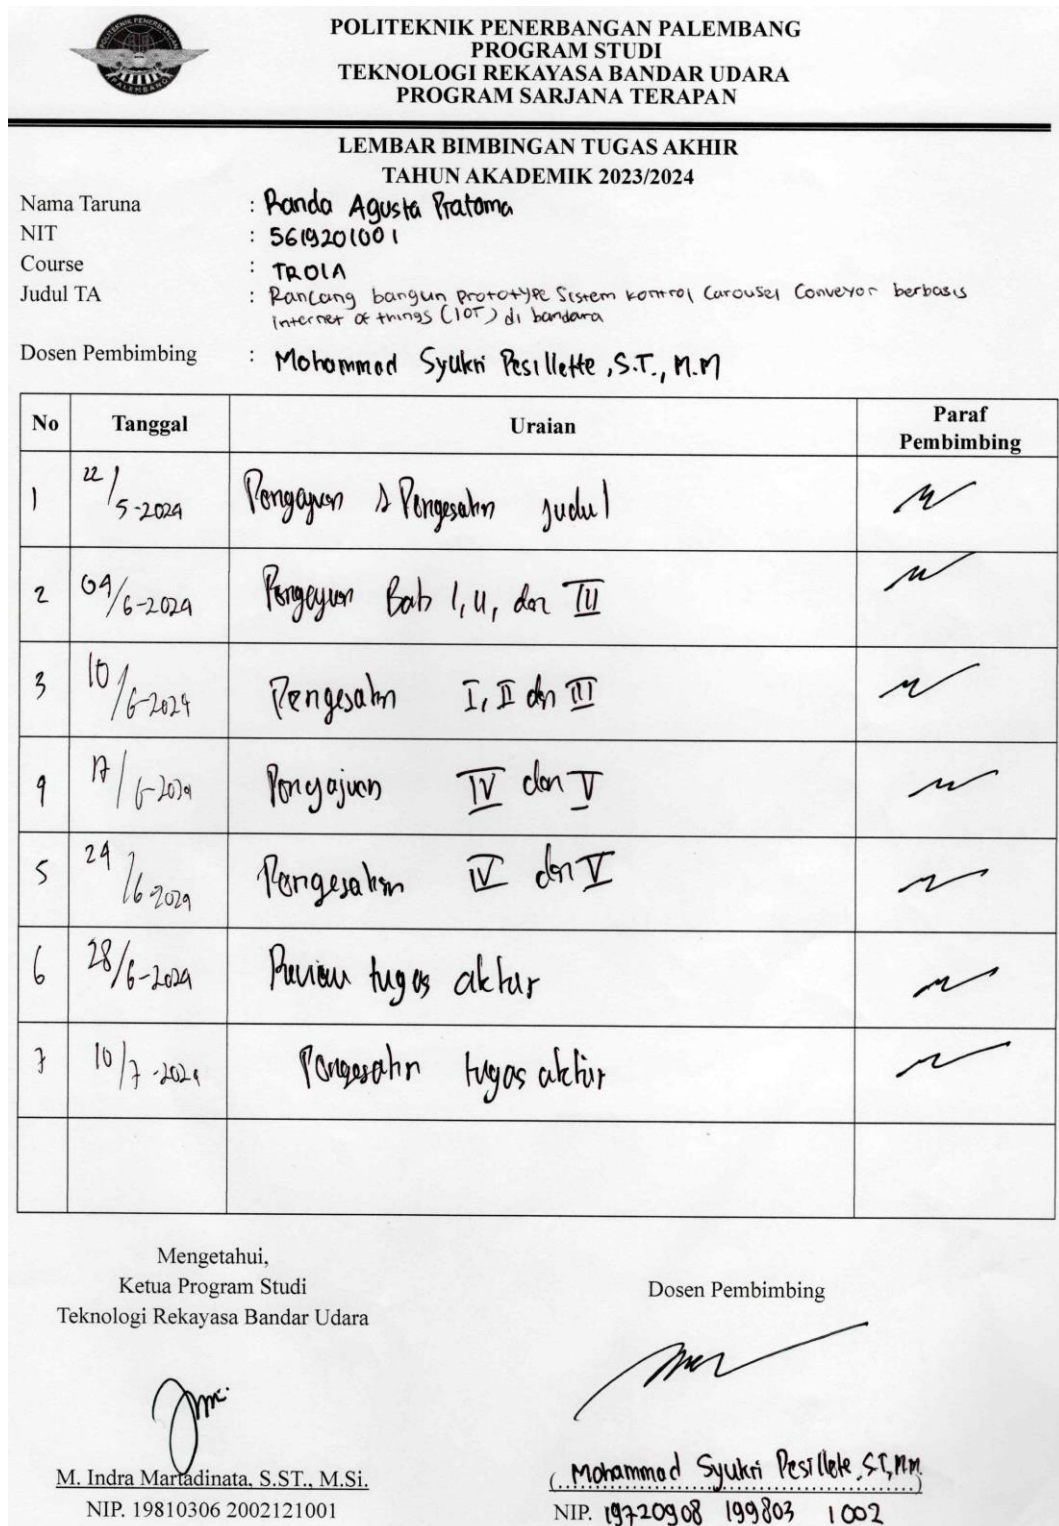 POLITEKNIK PENERBANGAN PALEMBANG
PROGRAM STUDI
TEKNOLOGI REKAYASA BANDAR UDARA
PROGRAM SARJANA TERAPAN
LEMBAR BIMBINGAN TUGAS AKHIR
TAHUN AKADEMIK 2023/2024
Nama Taruna : Randa Agusta Pratama
NIT : 5619201001
Course : TROIA
Judul TA : Rancang bangun prototype Sistem kontrol Carousel Conveyor berbasis
internet of things (IOT) di bandara
Dosen Pembimbing : Mohammad Syukri Pesillette, S.T., M.M
No Tanggal Uraian Paraf Pembimbing
1 22/5-2024 Pengajuan & Pengesahn judul
2 04/6-2024 Pengajuan Bab I, II, dan III
3 10/6-2024 Pengesahn I, II dan III
4 17/6-2024 Pengajuan IV dan V
5 24/6-2024 Pengesahan IV dan V
6 28/6-2024 Review tugas akhir
7 10/7-2024 Pengesahn tugas akhir
Mengetahui,
Ketua Program Studi
Teknologi Rekayasa Bandar Udara
Dosen Pembimbing
M. Indra Martadinata, S.ST., M.Si.
NIP. 19810306 2002121001
(Mohammad Syukri Pesillete, ST, MM.)
NIP. 19720908 199803 1002